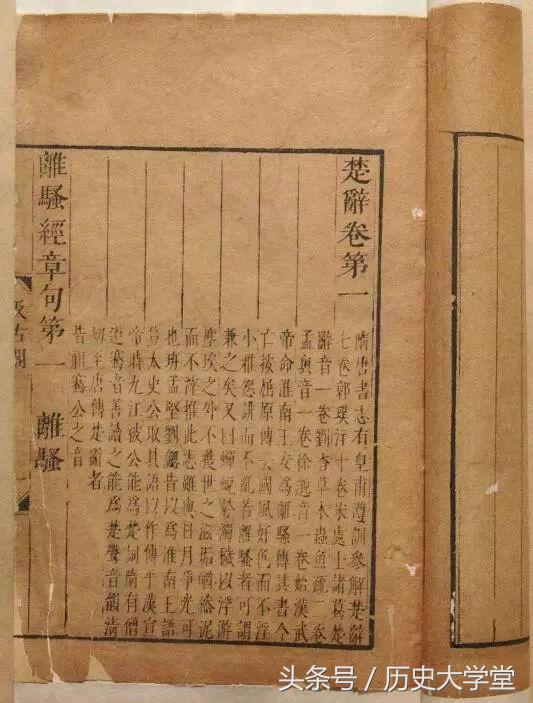 楚辭卷第一
隋唐書志有皇甫遵訓參解楚辭
七卷郭璞注十卷宋處士諸葛楚
辭音一卷劉杳草木蟲魚疏二卷
孟奧音一卷徐邈音一卷始漢武
帝命淮南王安爲離騷傳其書今
亡按屈原傳云國風好色而不淫
小雅怨誹而不亂若離騷者可謂
兼之矣又曰蟬蛻於濁穢以浮游
塵埃之外不獲世之滋垢皭然泥
而不滓推此志雖與日月爭光可
也班孟堅劉勰皆以爲淮南王語
豈太史公取其語以作傳乎漢宣
帝時九江被公能爲楚詞隋有僧
道騫者善讀之能爲楚聲音韻清
切至唐傳楚辭者
皆祖騫公之音
離騷經章句第一 離騷
汲古閣
头条号 / 历史大学堂